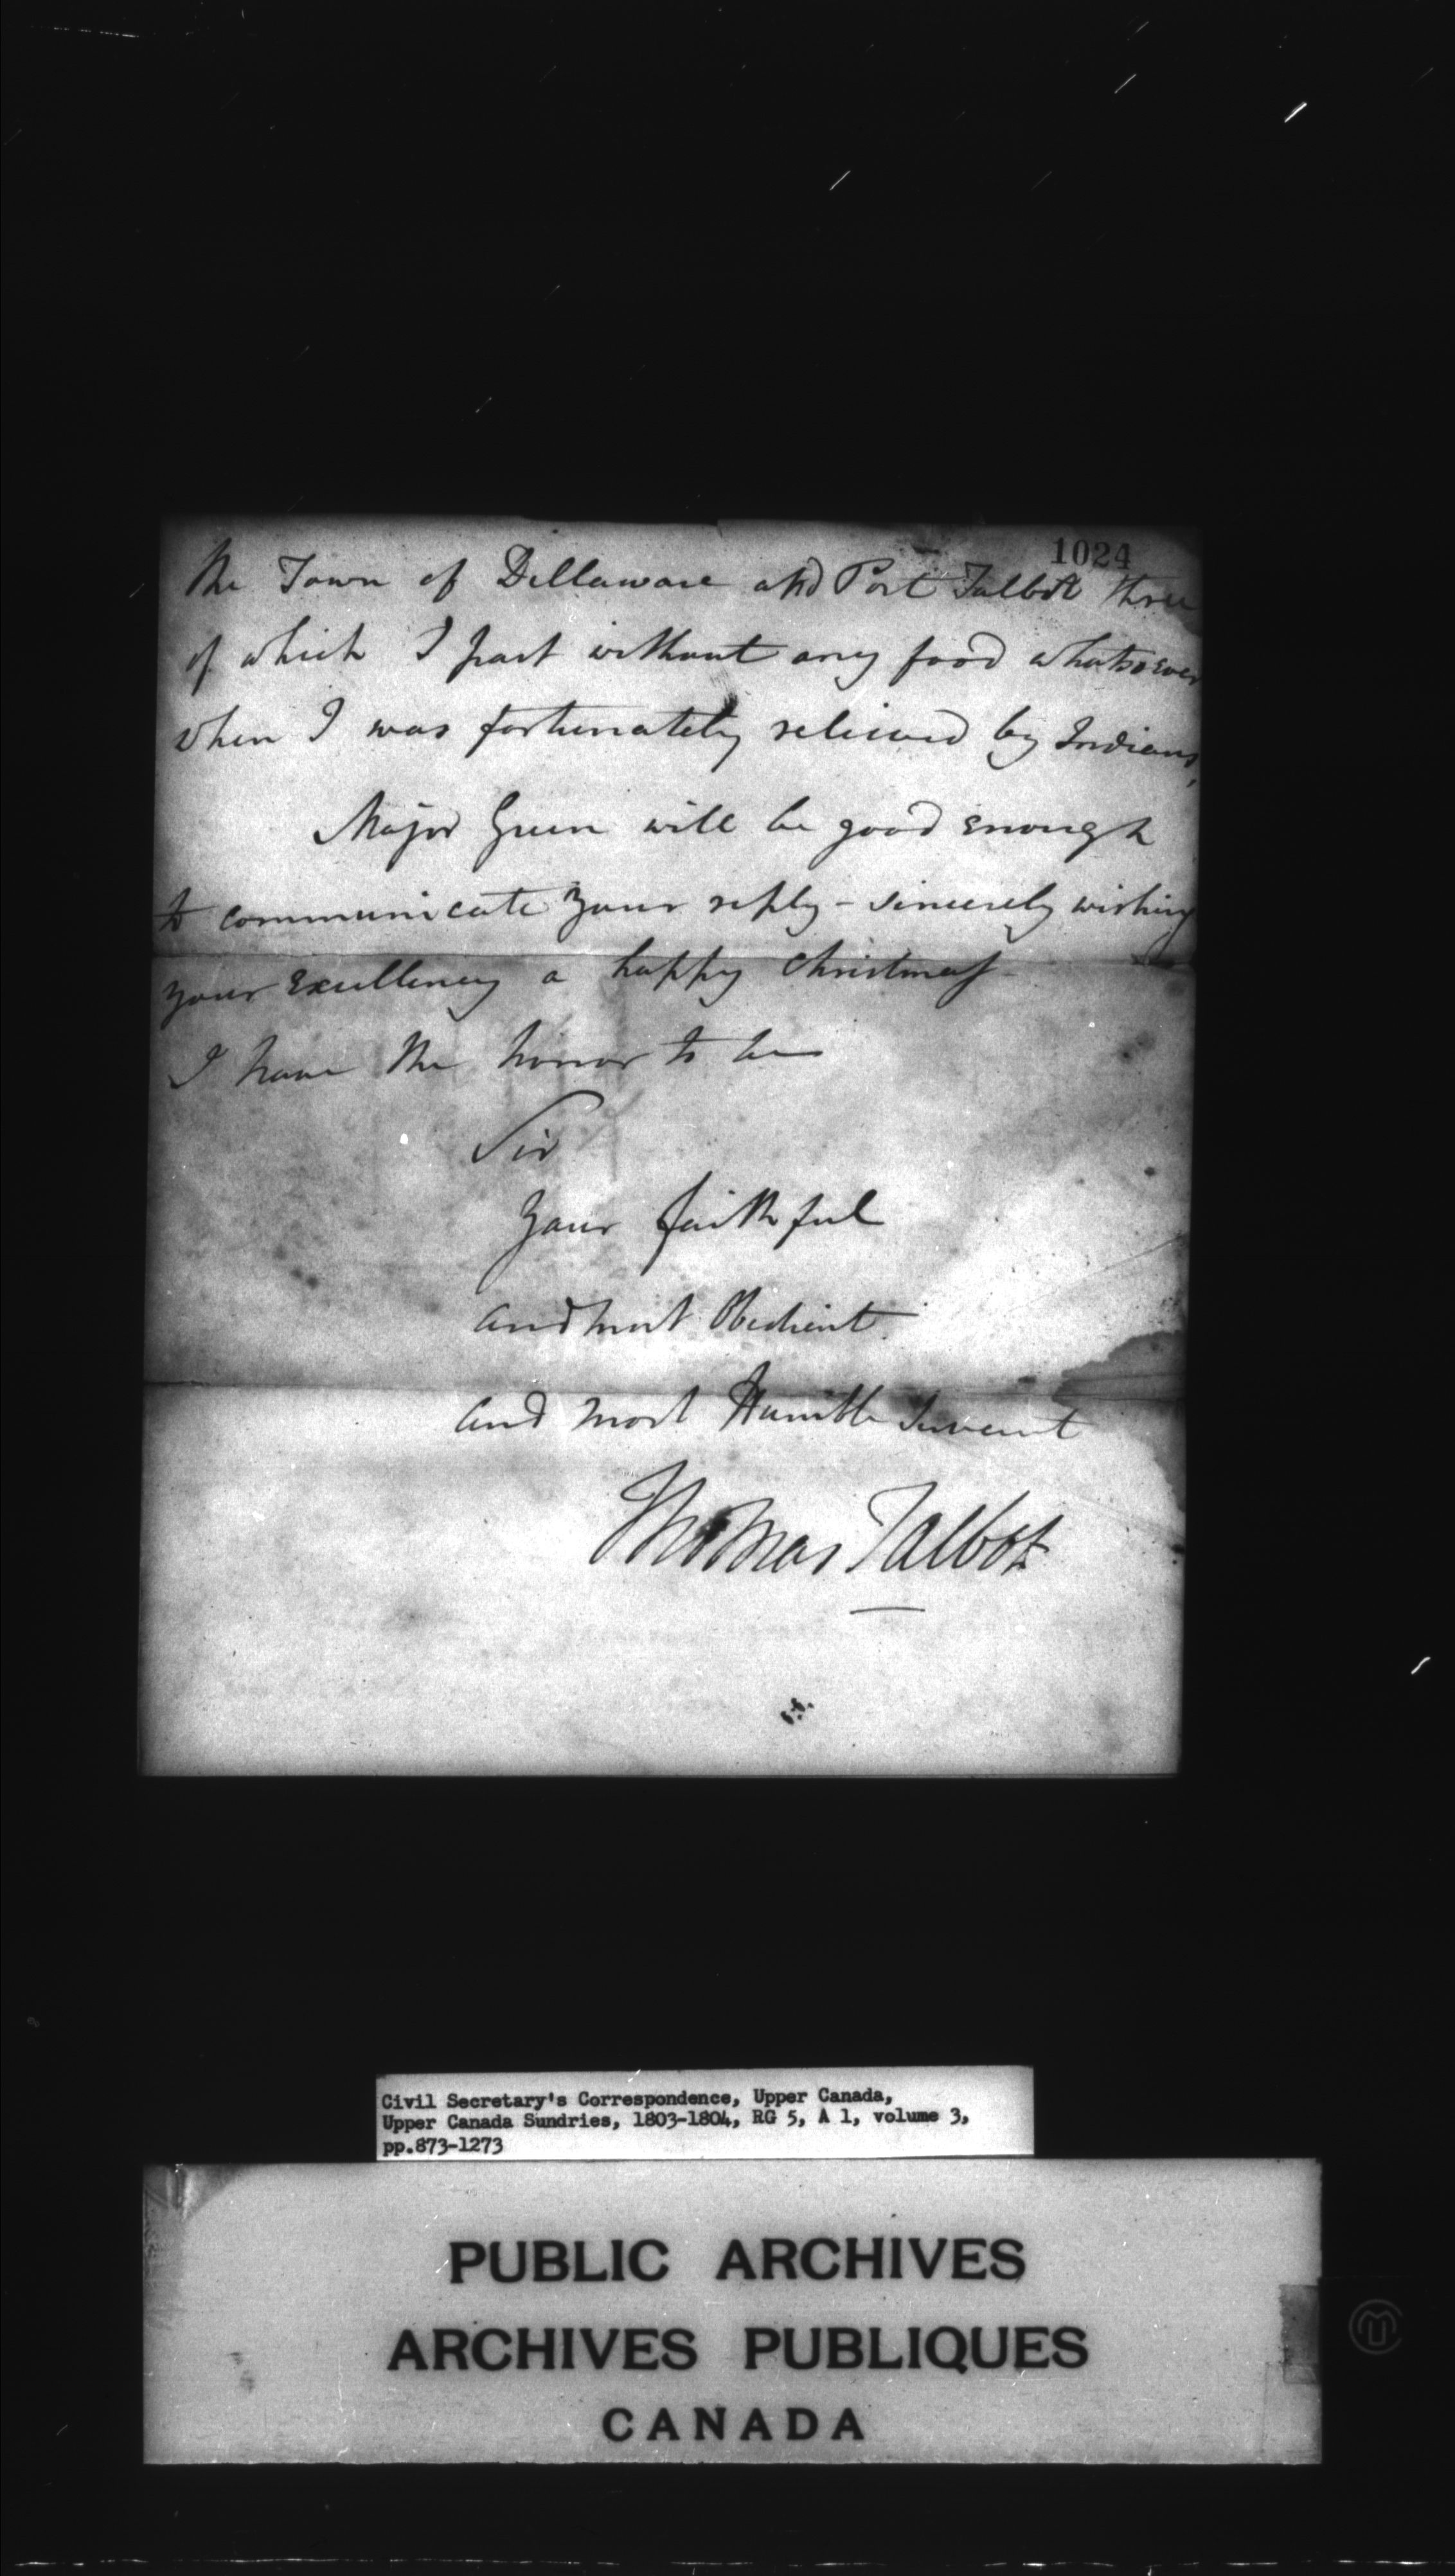 1024
the Town of Dellaware and Port Talbot three
of which I past without any food whatsoever
when I was fortunately relieved by Indians,
Major Green will be good enough
to communicate your reply - sincerely wishing
your Excellency a happy Christmas
I have the honor to be
Sir
Your faithful
and most Obedient
and most Humble Servant
Thomas Talbot
Civil Secretary's Correspondence, Upper Canada,
Upper Canada Sundries, 1803-1804, RG 5, A 1, volume 3,
pp.873-1273
PUBLIC ARCHIVES
ARCHIVES PUBLIQUES
CANADA